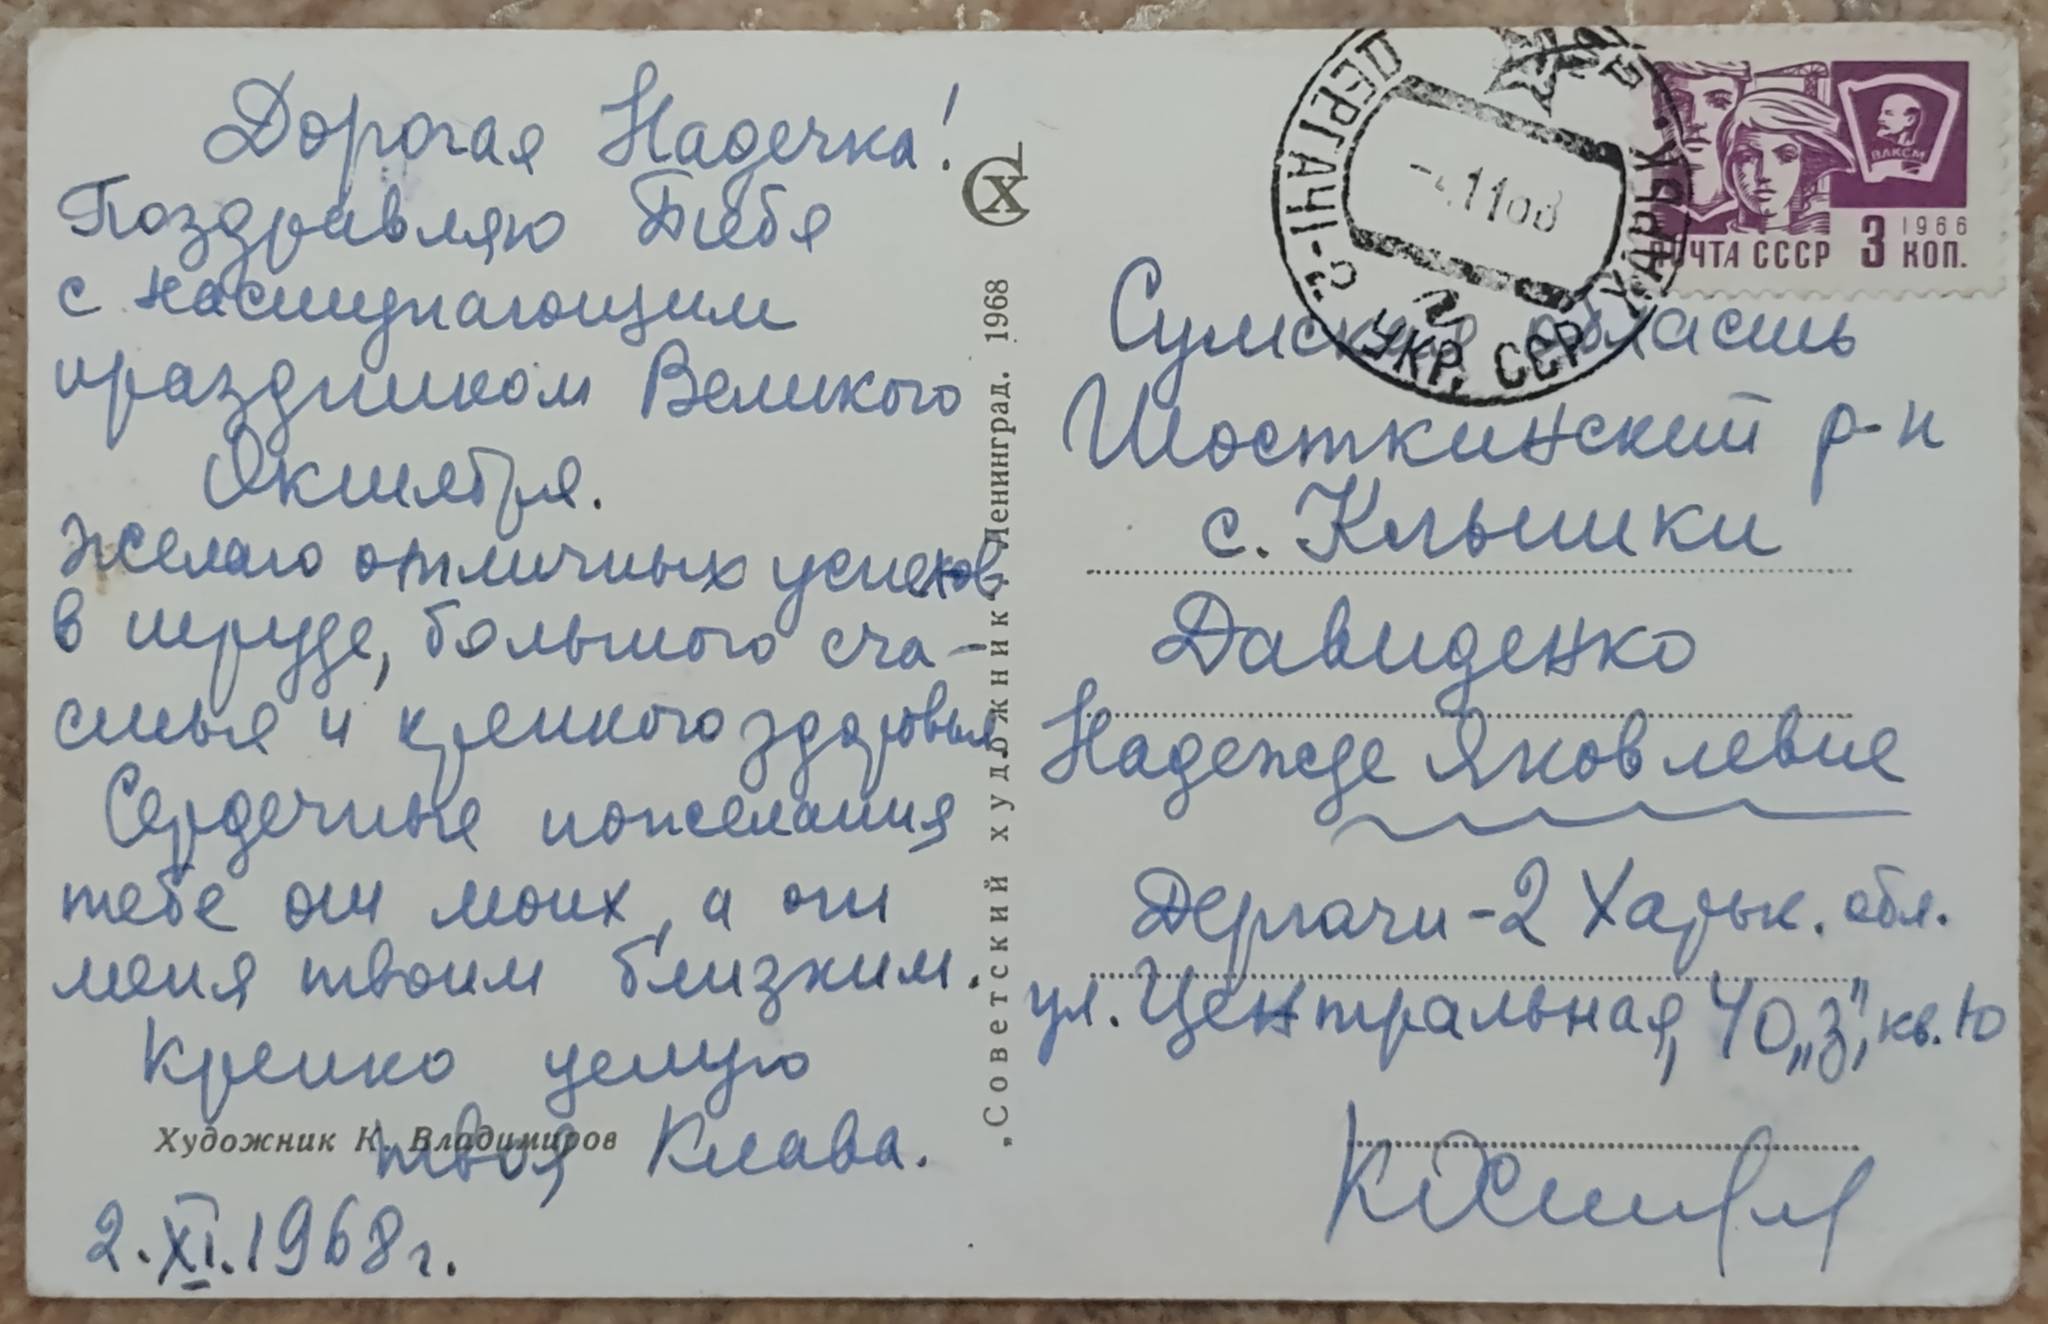 Дорогая Надечка!
Поздравляю Тебя
с наступающим
праздником Великого
Октября.
Желаю отличных успехов
в труде, большого сча-
стья и крепкого здоровья
Сердечные пожелания
тебе от моих, а от
меня твоим близким.
Крепко целую
твоя Клава.
Художник К. Владимиров
2.XI.1968г.
„Советский художник". Ленинград. 1968
СХ
ДЕРГАЧІ-2 УКР. ССР ХАРЬК.
11 68
ВЛКСМ
1966
ПОЧТА СССР 3 КОП.
Сумская область
Шосткинский р-н
с. Клышки
Давиденко
Надежде Яковлевне
Дергачи-2 Харьк. обл.
ул. Центральная, 40 „З", кв. 10